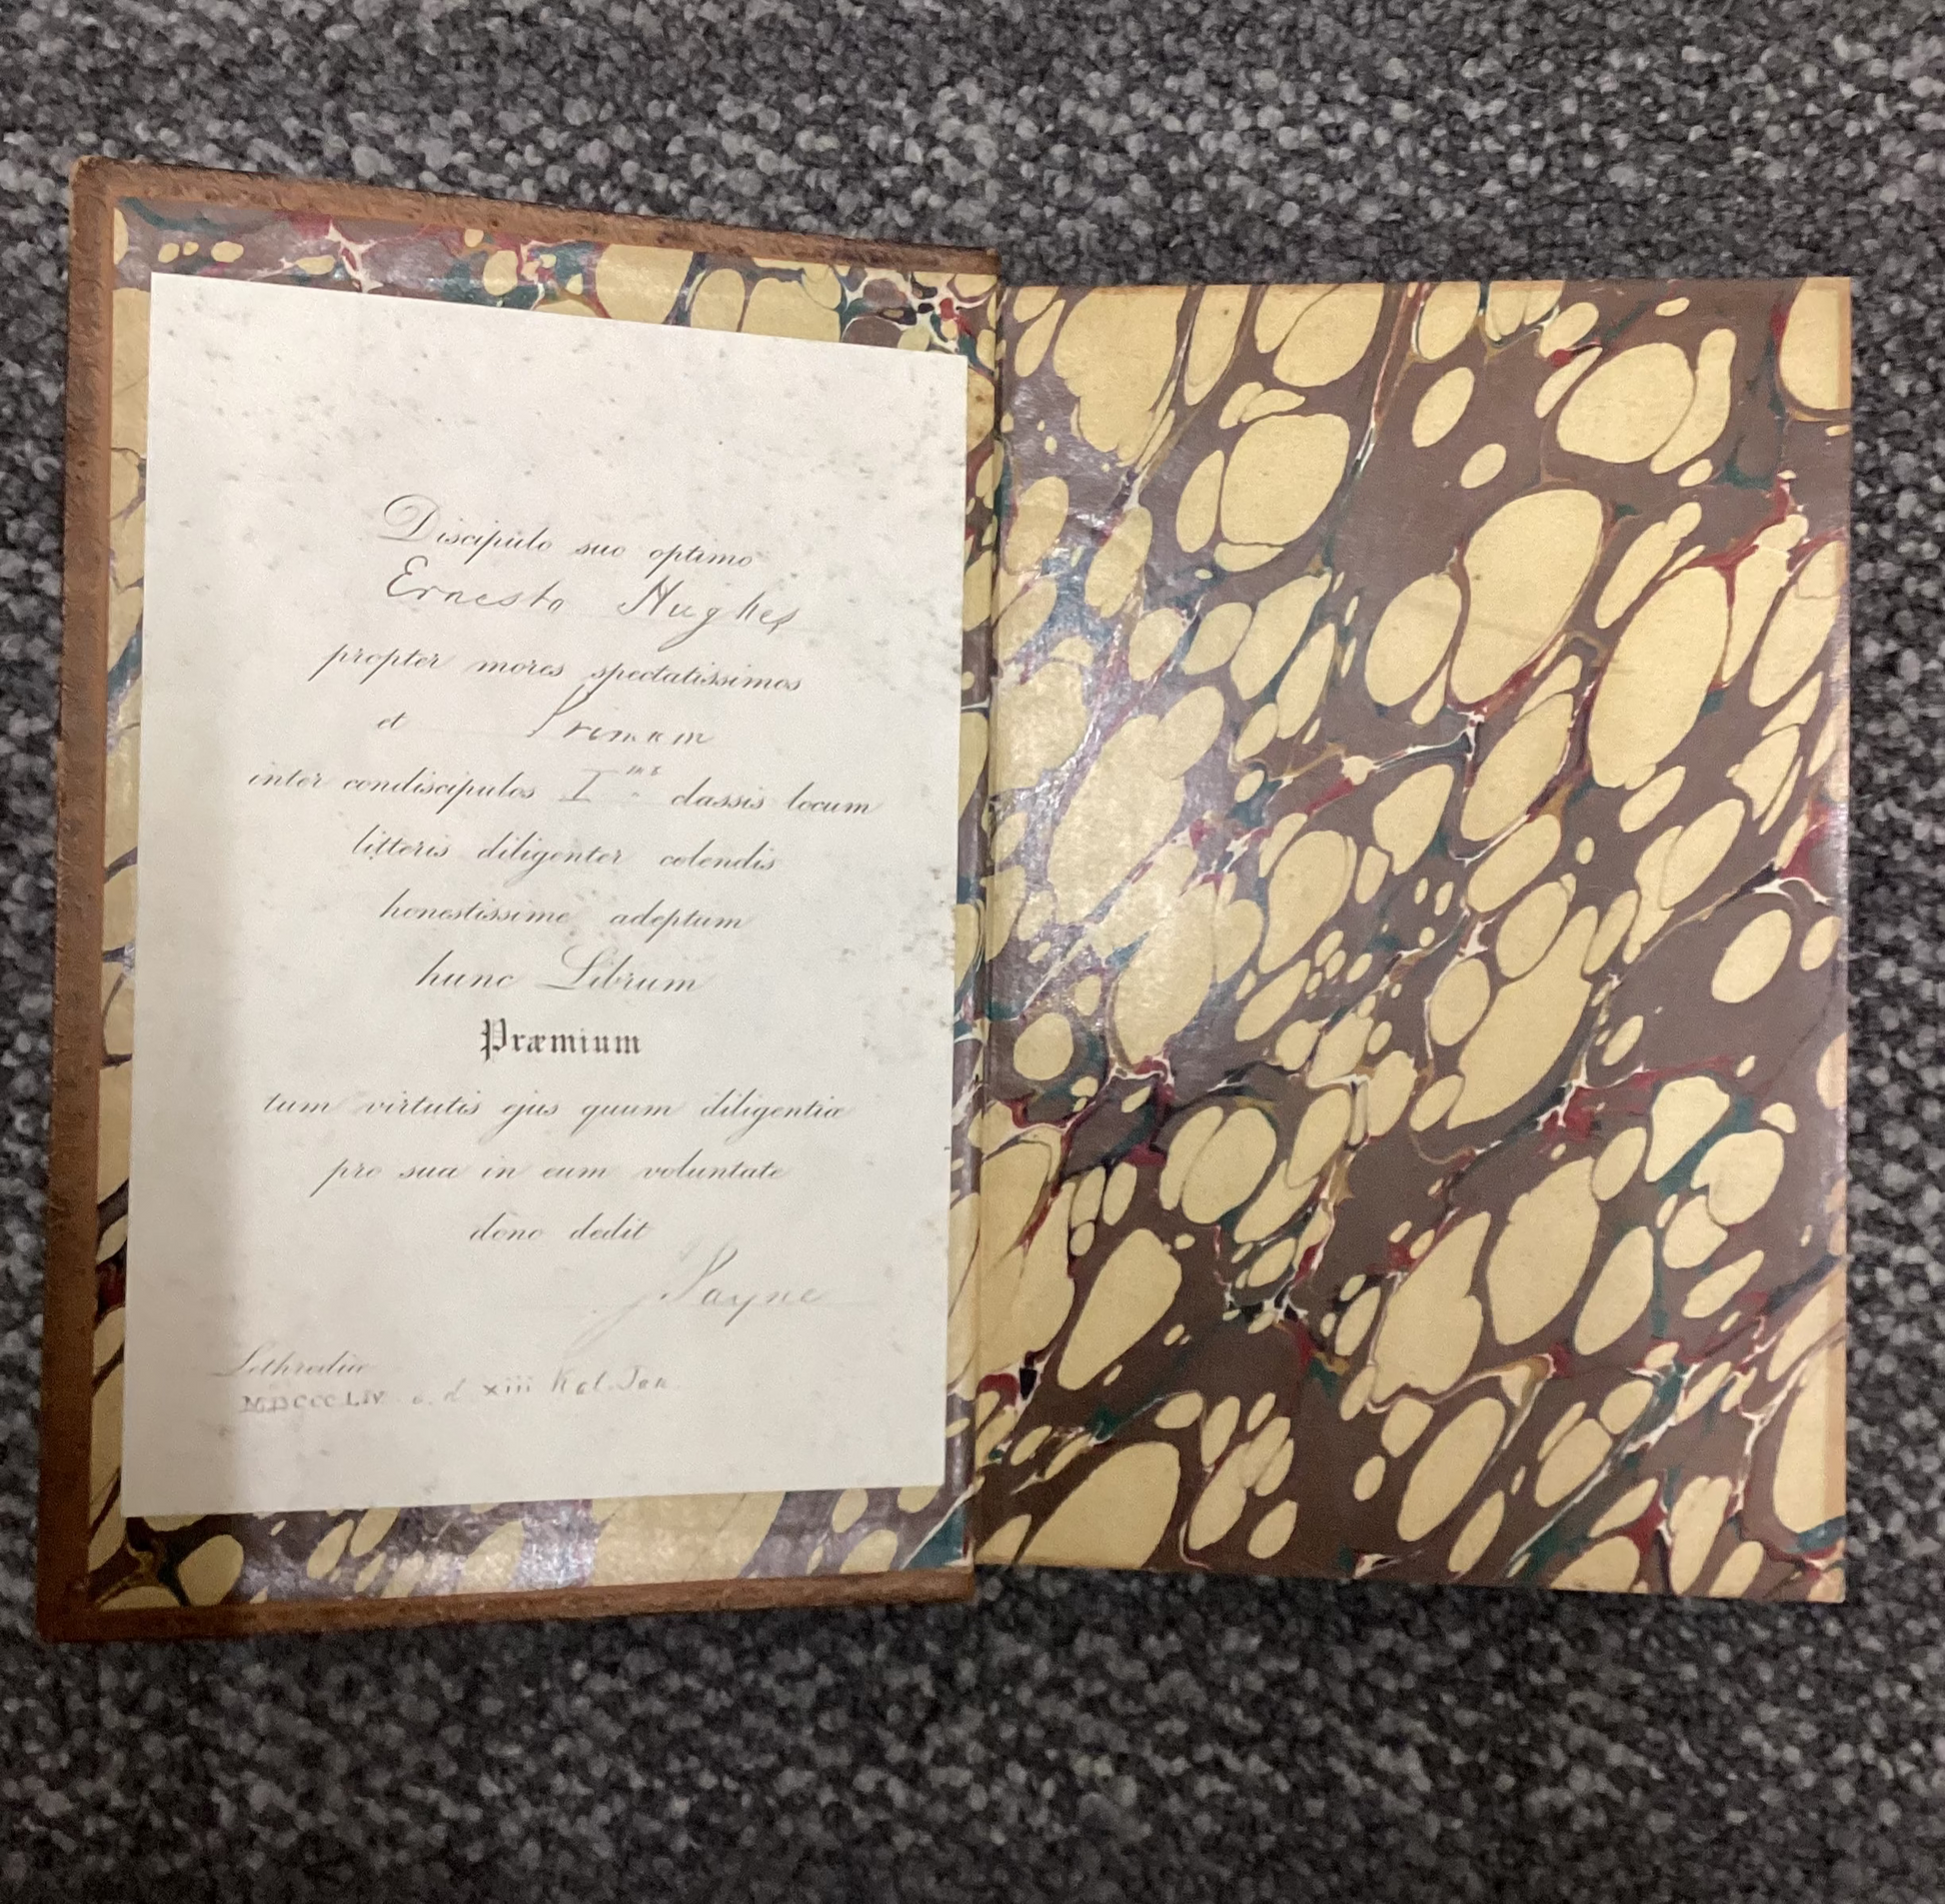 Discipulo suo optimo
Ernesto Hughes
propter mores spectatissimos
et Primum
inter condiscipulos I mæ classis locum
litteris diligenter colendis
honestissime adeptum
hunc Librum
Præmium
tum virtutis ejus quum diligentiæ
pro sua in eum voluntate
dono dedit
J Payne
Lethrediæ
MDCCCLIV a. d. xiii Kal. Jan.